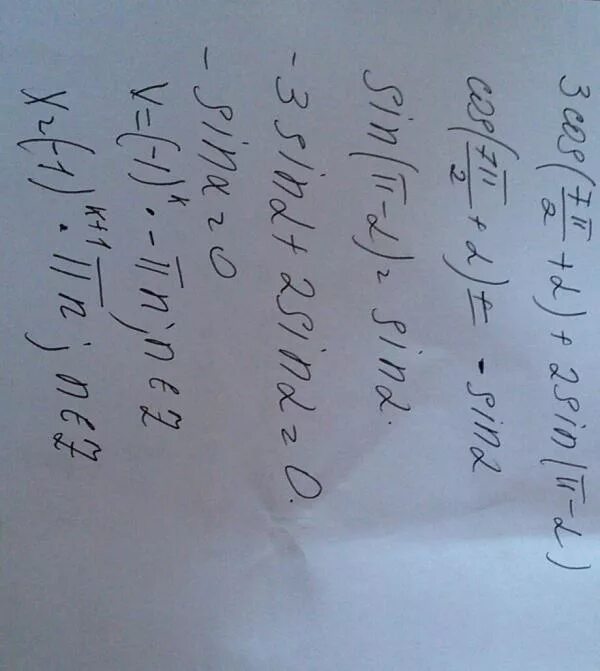 3cos(7π/2 + α) + 2sin(π - α)
cos(7π/2 + α) = - sinα
sin(π - α) = sinα.
-3sinα + 2sinα = 0.
- sinα = 0
x = (-1)^k · - πn; n ∈ Z
x = (-1)^(k+1) · πn; n ∈ Z